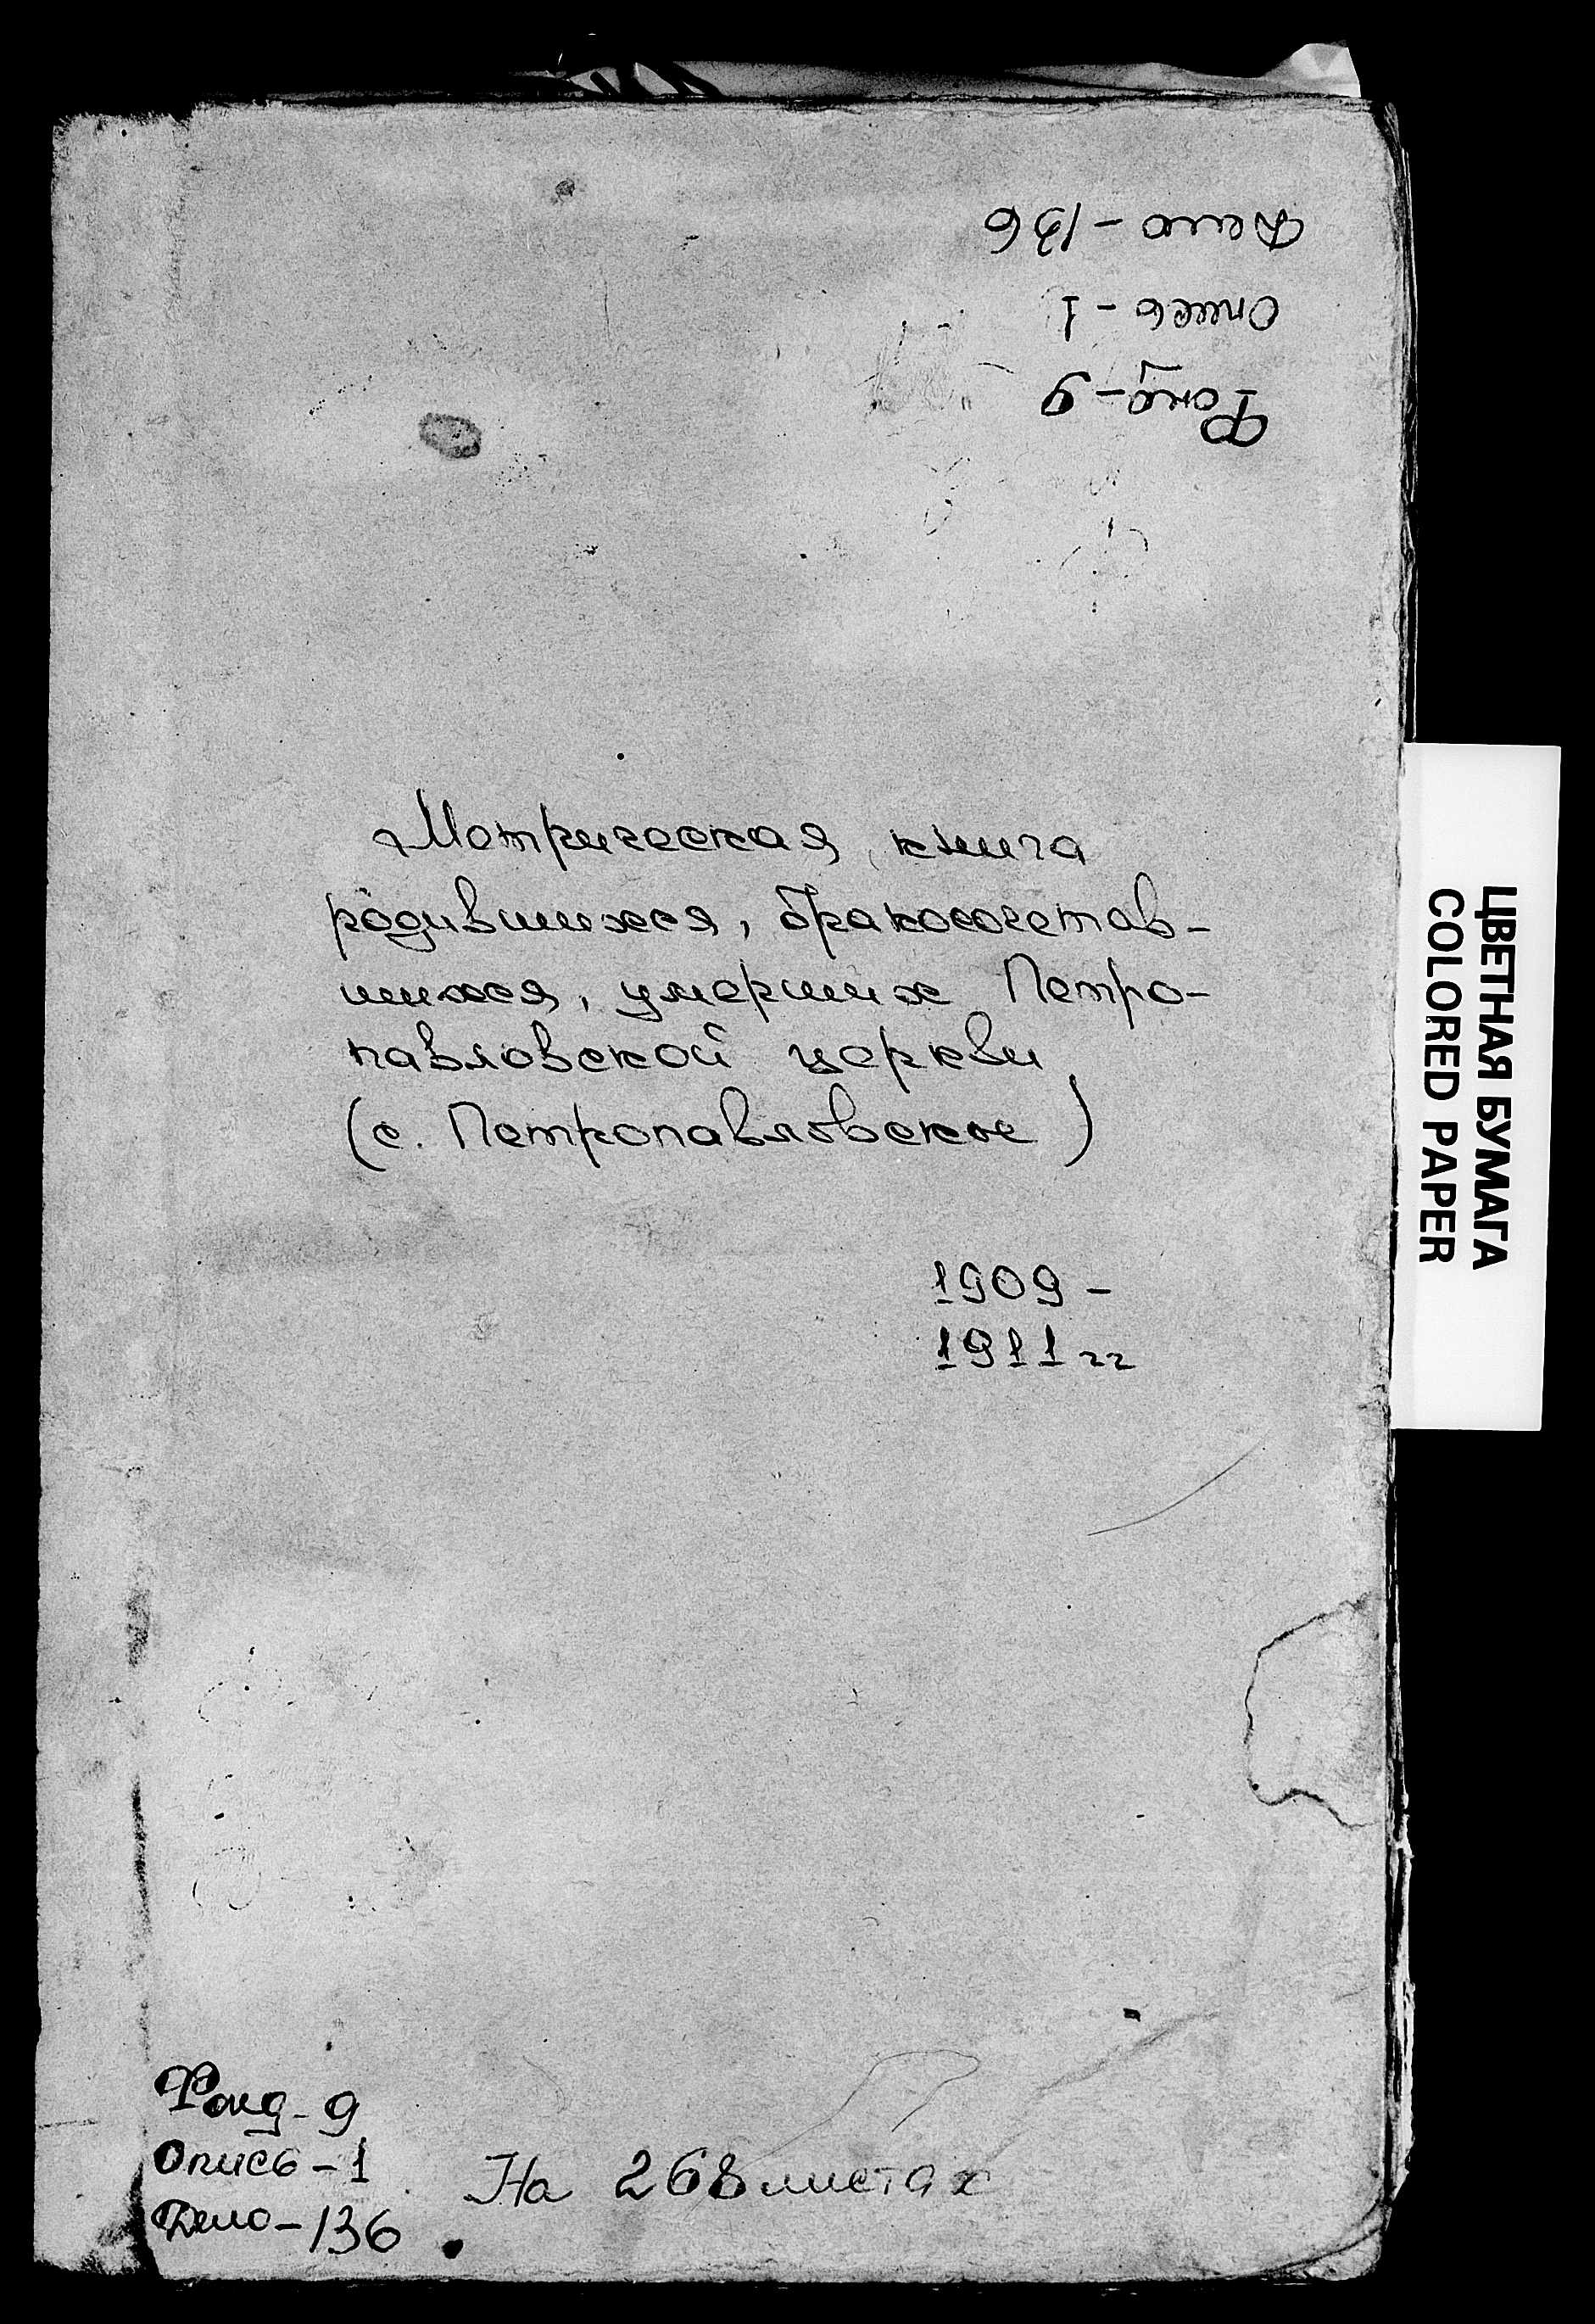 Фонд-9
Опись-1
Дело-136
Метрическая книга
родившихся, бракосочетав-
шихся, умерших Петро-
павловской церкви
(с. Петропавловское)
1909-
1911 гг
ЦВЕТНАЯ БУМАГА
COLORED PAPER
Фонд-9
Опись-1
Дело-136
На 268 листах